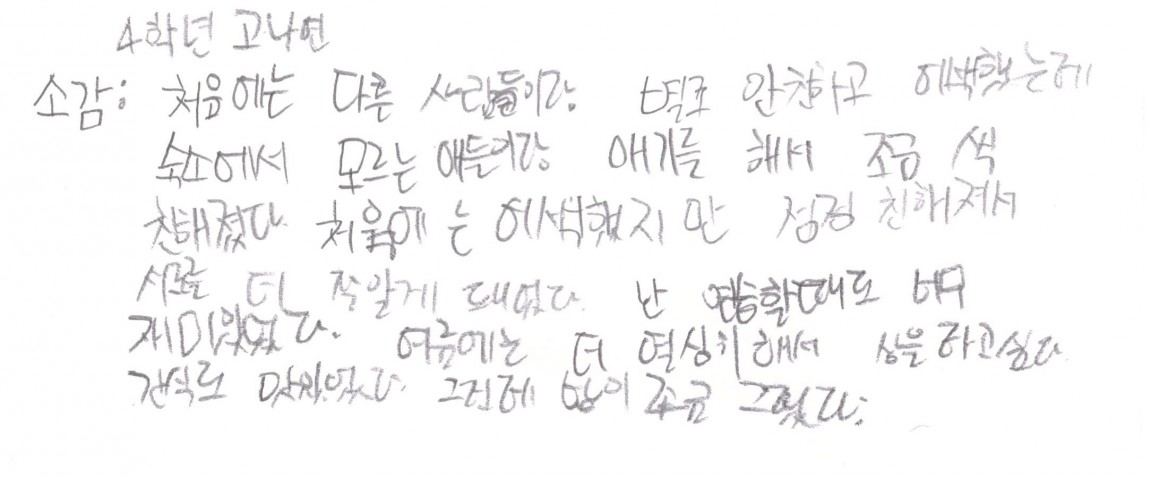 4학년 고나연
소감: 처음에는 다른 사람들이랑 별로 안친하고 어색했는데
숙소에서 모르는 애들이랑 얘기를 해서 조금 씩
친해졌다. 처음에는 어색했지만 점점 친해져서
서로를 더 잘알게 돼었다. 난 연습할때도 너무
재미있었다. 더 열심히 해서 상을 타고싶다.
간식도 맛있었다. 그런데 밥이 조금 그렇다.